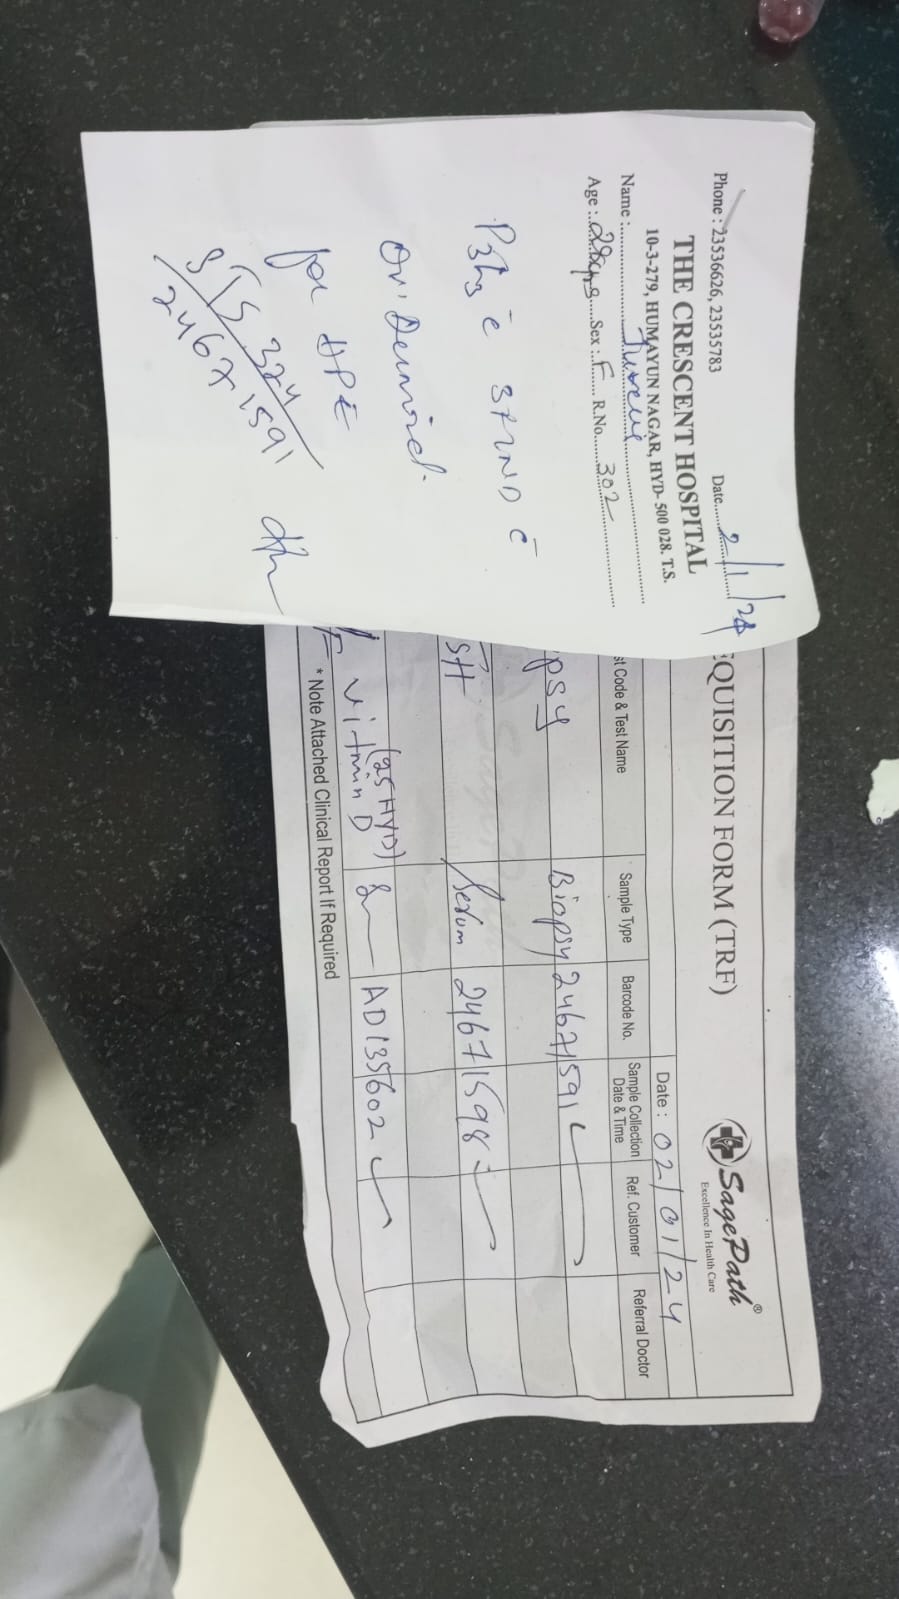 Phone : 23536626, 23535783 Date 2/1/24
THE CRESCENT HOSPITAL
10-3-279, HUMAYUN NAGAR, HYD- 500 028. T.S.
Name :
Age : 28yrs Sex : F R.No. 302
for HPE
S/ 24671591
EQUISITION FORM (TRF)
SagePath®
Excellence In Health Care
Date : 02/01/24
st Code & Test Name Sample Type Barcode No. Sample Collection Date & Time Ref. Customer Referral Doctor
psy Biopsy 24671591
SH Serum 24671598
(25 HYD)
vitmin D AD135602
* Note Attached Clinical Report If Required